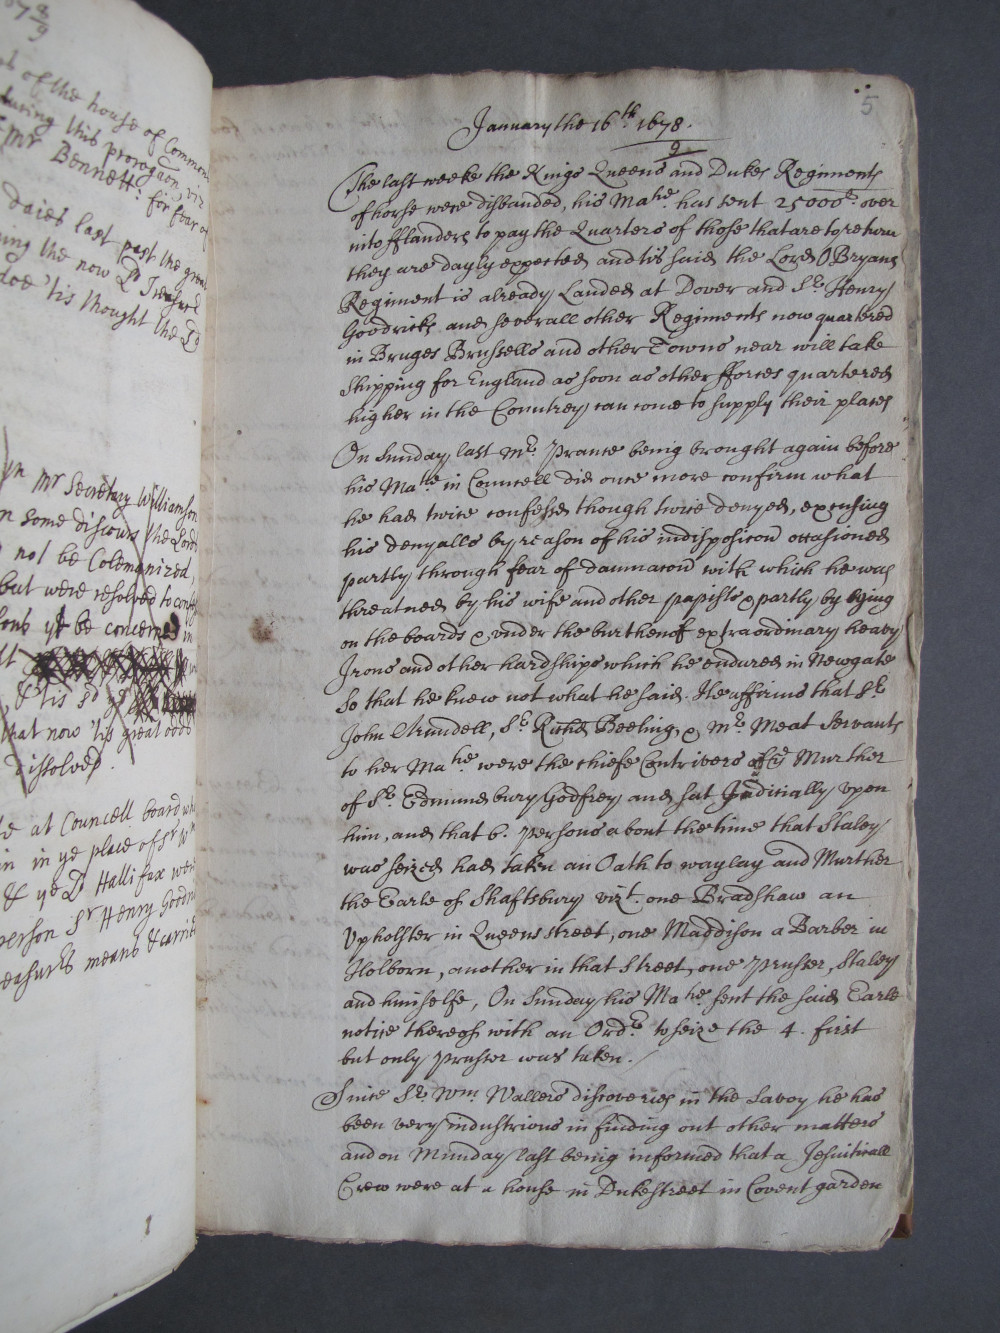 167 8/9
of the house of Common
during this prorogacon viz
Mr Bennett for fear of
daies last past the great
ing the now Ld Treasurer
doe 'tis thought the Ld
yn Mr Secretary Williamson
n some discours the Lords
not be Colemanized,
but were resolved to confes
sons yt be concerned in
& 'tis sd ye
that now 'tis great odds
dissolved.
at Councell board
in in ye place of Sr Wm
& ye Ld Hallifax were
person Sr Henry Goodri
easures means & carri
1
5
January the 16th. 1678/9.
The last weeke the Kings Queens and Dukes Regiments
of horse were disbanded, his Matie. has sent 25000l. over
into fflanders to pay the Quarters of those that are to return
they are dayly expected and tis said the Lord OBryans
Regiment is already Landed at Dover and Sr. Henry
Goodricks and severall other Regiments now quartered
in Bruges Brussells and other Towns near will take
Shipping for England as soon as other fforces quartered
higher in the Countrey can come to supply their places
On Sunday last Mr. Prance being brought again before
his Matie. in Councell did once more confirm what
he had twice confessed though twice denyed, excusing
his denyalls by reason of his indisposicon occasioned
partly through fear of damnacon with which he was
threatned by his wife and other papists & partly by lying
on the boards & under the burthen of extraordinary heavy
Irons and other hardships which he endured in Newgate
So that he knew not what he said. He affirms that Sr.
John Arundell, Sr. Richd Beeling, & Mr. Meat Servants
to her Matie. were the chiefe Contrivers of ye Murther
of Sr. Edmundbury Godfrey and sat Judicially upon
him, and that 6. persons about the time that Staley
was seized had taken an Oath to waylay and Murther
the Earle of Shaftsbury vizt. one Bradshaw an
Upholster in Queenstreet, one Maddison a Barber in
Holborn, another in that Street, one Pruster, Staley
and himselfe, On Sunday his Matie. sent the said Earle
notice thereof with an Ordr. to seize the 4. first
but only Pruster was taken.
Since Sr. Wm. Wallers discoveries in the Savoy he has
been very industrious in finding out other matters
and on Munday last being informed that a Jesuiticall
Crew were at a house in Dukestreet in Covent garden